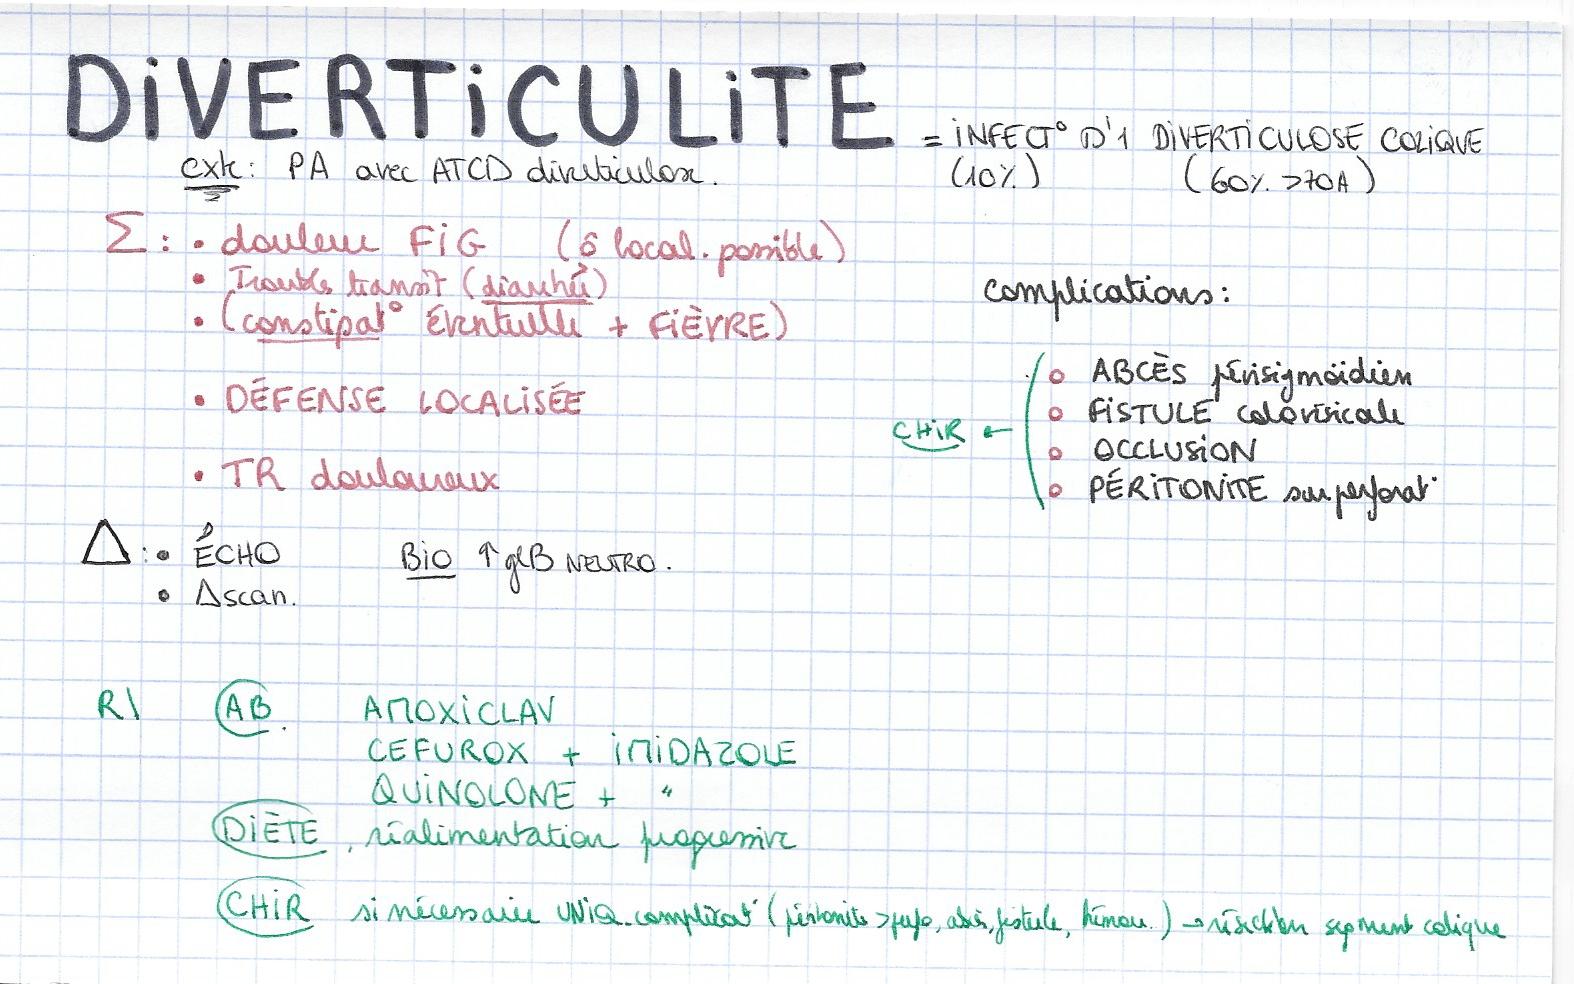 DiVERTiCULiTE = iNFECT° D'1 DiVERTiCULOSE COLiQUE
(10%) (60% >70A)
ctxte: PA avec ATCD diverticulose.
Σ: • douleur FiG (ô local. possible)
• Trouble transit (diarrhée)
• (constipat° éventuelle + FiÈVRE)
• DÉFENSE LOCALiSÉE
• TR douloureux
complications:
CHiR ←
° ABCÈS périsigmoïdien
° FiSTULE colovésicale
° OCCLUSiON
° PÉRiTONiTE sur perforat°
Δ: • ÉCHO Bio ↑ glB NEUTRO.
• Δscan.
R\ AB. AMOXiCLAV
CEFUROX + iMiDAZOLE
QUiNOLONE + "
DiÈTE, réalimentation progressive
CHiR si nécessaire UNiQ. complicat° (péritonite > perfo, abcès, fistule, hémorr.) → résection segment colique